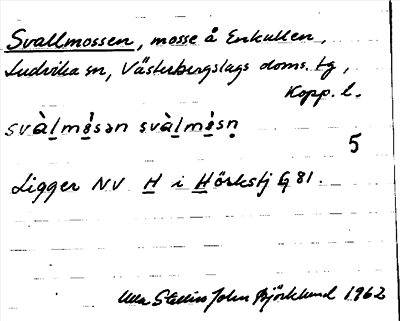 Svallmossen, mosse å Enkullen,
Ludvika sn, Västerbergslags doms. tg,
Kopp. l.
svàl̲mè̲sən svàl̲mè̲sn̥
5
Ligger NV H i Hörkstj G 81.
John Björklund 1962